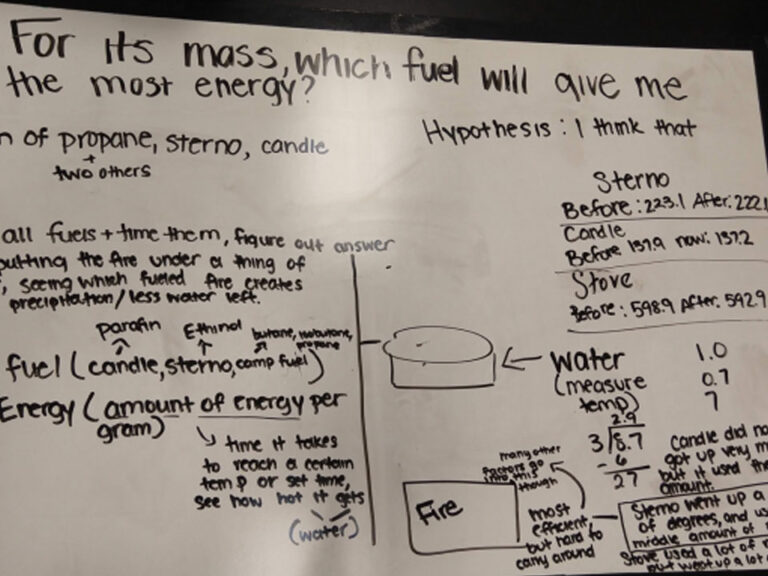 For its mass, which fuel will give me
the most energy?
n of propane, sterno, candle
+
two others
Hypothesis: I think that
Sterno
Before: 223.1 After: 222.1
Candle
Before 137.9 now: 137.2
Stove
Before: 598.9 After: 592.9
all fuels + time them, figure out answer
putting the fire under a thing of
, seeing which fueled fire creates
precipitation/less water left.
parafin
Ethinol
butane, isobutane,
propane
fuel (candle, sterno, camp fuel)
Energy (amount of energy per
gram)
time it takes
to reach a certain
temp or set time,
see how hot it gets
(water)
water
(measure
temp)
1.0
0.7
7
2.9
3/8.7
- 6
27
Fire
many other
factors go
into this
though
most
efficient,
but hard to
carry around
Candle did no
got up very m
but it used the
amount.
Sterno went up a
of degrees, and us
middle amount of
Stove used a lot of
but went up a lot